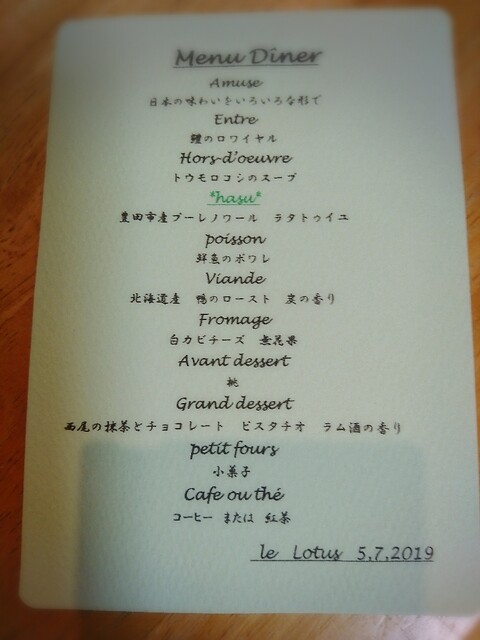 Menu Diner
Amuse
日本の味わいをいろいろな形で
Entre
鰻のロワイヤル
Hors-d'oeuvre
トウモロコシのスープ
*hasu*
豊田市産プーレノワール ラタトゥイユ
poisson
鮮魚のポワレ
Viande
北海道産 鴨のロースト 炭の香り
Fromage
白カビチーズ 無花果
Avant dessert
桃
Grand dessert
西尾の抹茶とチョコレート ピスタチオ ラム酒の香り
petit fours
小菓子
Cafe ou thé
コーヒー または 紅茶
le Lotus 5,7,2019